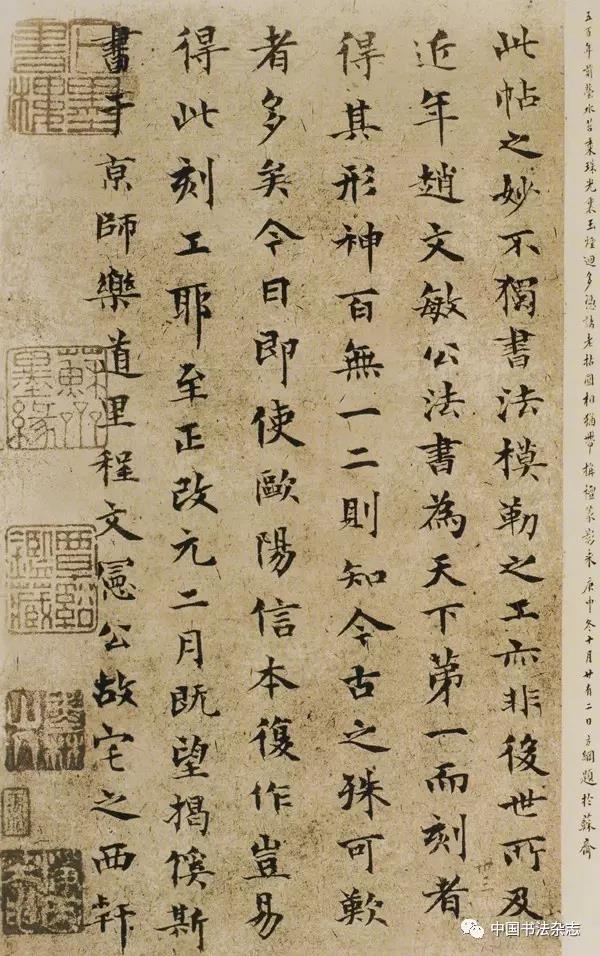 五百年前 庚申冬十月廿有二日方綱題於蘇齋
此帖之妙不獨書法模勒之工亦非後世所及
近年趙文敏公法書為天下第一而刻者
得其形神百無一二則知今古之殊可歎
者多矣今日即使歐陽信本復作豈易
得此刻工耶至正改元二月既望揭傒斯
書于京師樂道里程文憲公故宅之西軒
墨緣
鑑藏
中国书法杂志